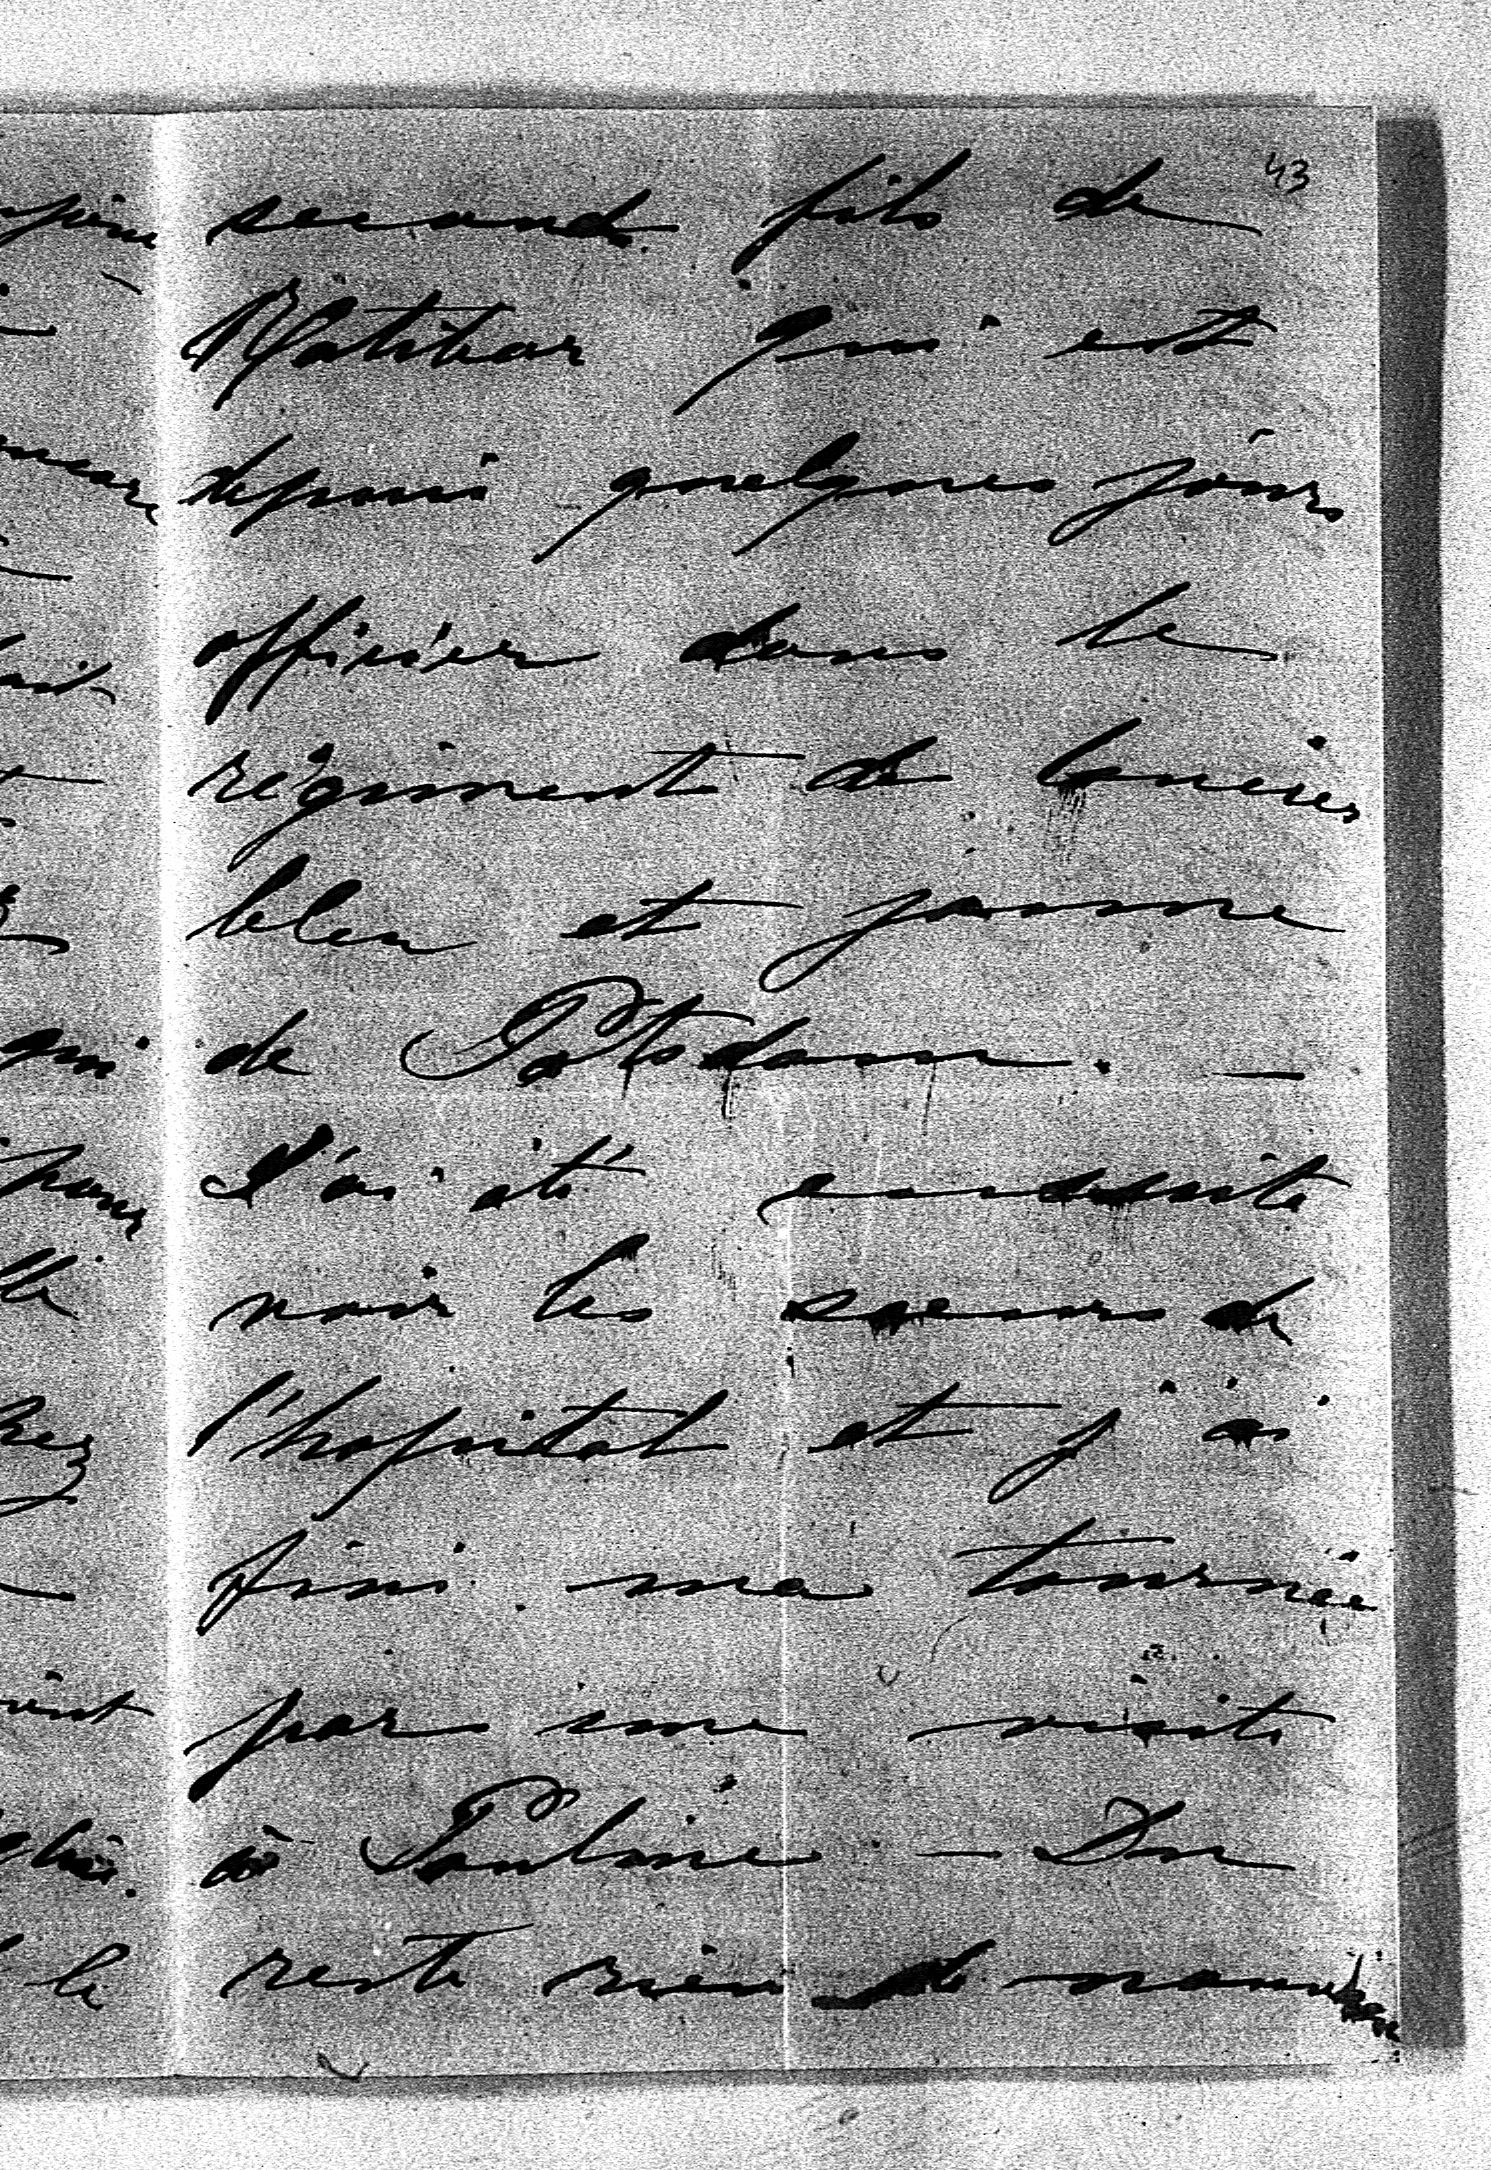 43
second fils de
Ratibor qui est
depuis quelques jours
officier dans le
régiment de lanciers
bleu et jaune
de Potsdam. —
J'ai été ensuite
voir les soeurs de
l'hopital et j'ai
fini ma tournée
par une visite
à Pauline — Du
reste rien de nouveau